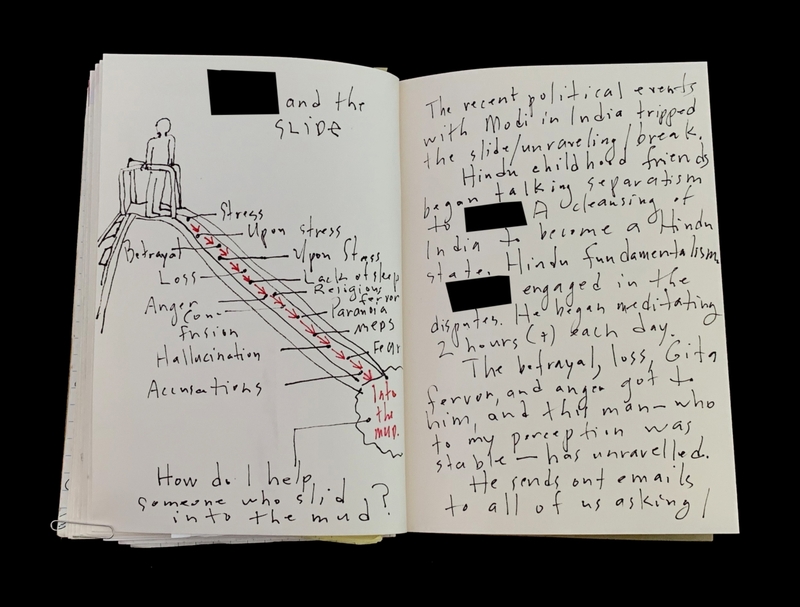 and the
SLIDE
Stress
Upon stress
Betrayal
Upon Stress
Loss
Lack of sleep
Religious
fervor
Anger
Con-
fusion
Paranoia
meds
Hallucination
Fear
Accusations
Into
the
mud.
How do I help
someone who slid
into the mud?
The recent political events
with Modi in India tripped
the slide/unraveling/break.
Hindu childhood friends
began talking separatism
to A cleansing of
India to become a Hindu
state. Hindu fundamentalism.
engaged in the
disputes. He began meditating
2 hours (+) each day.
The betrayal, loss, Gita
fervor, and anger got to
him, and this man— who
to my perception was
stable — has unravelled.
He sends out emails
to all of us asking/